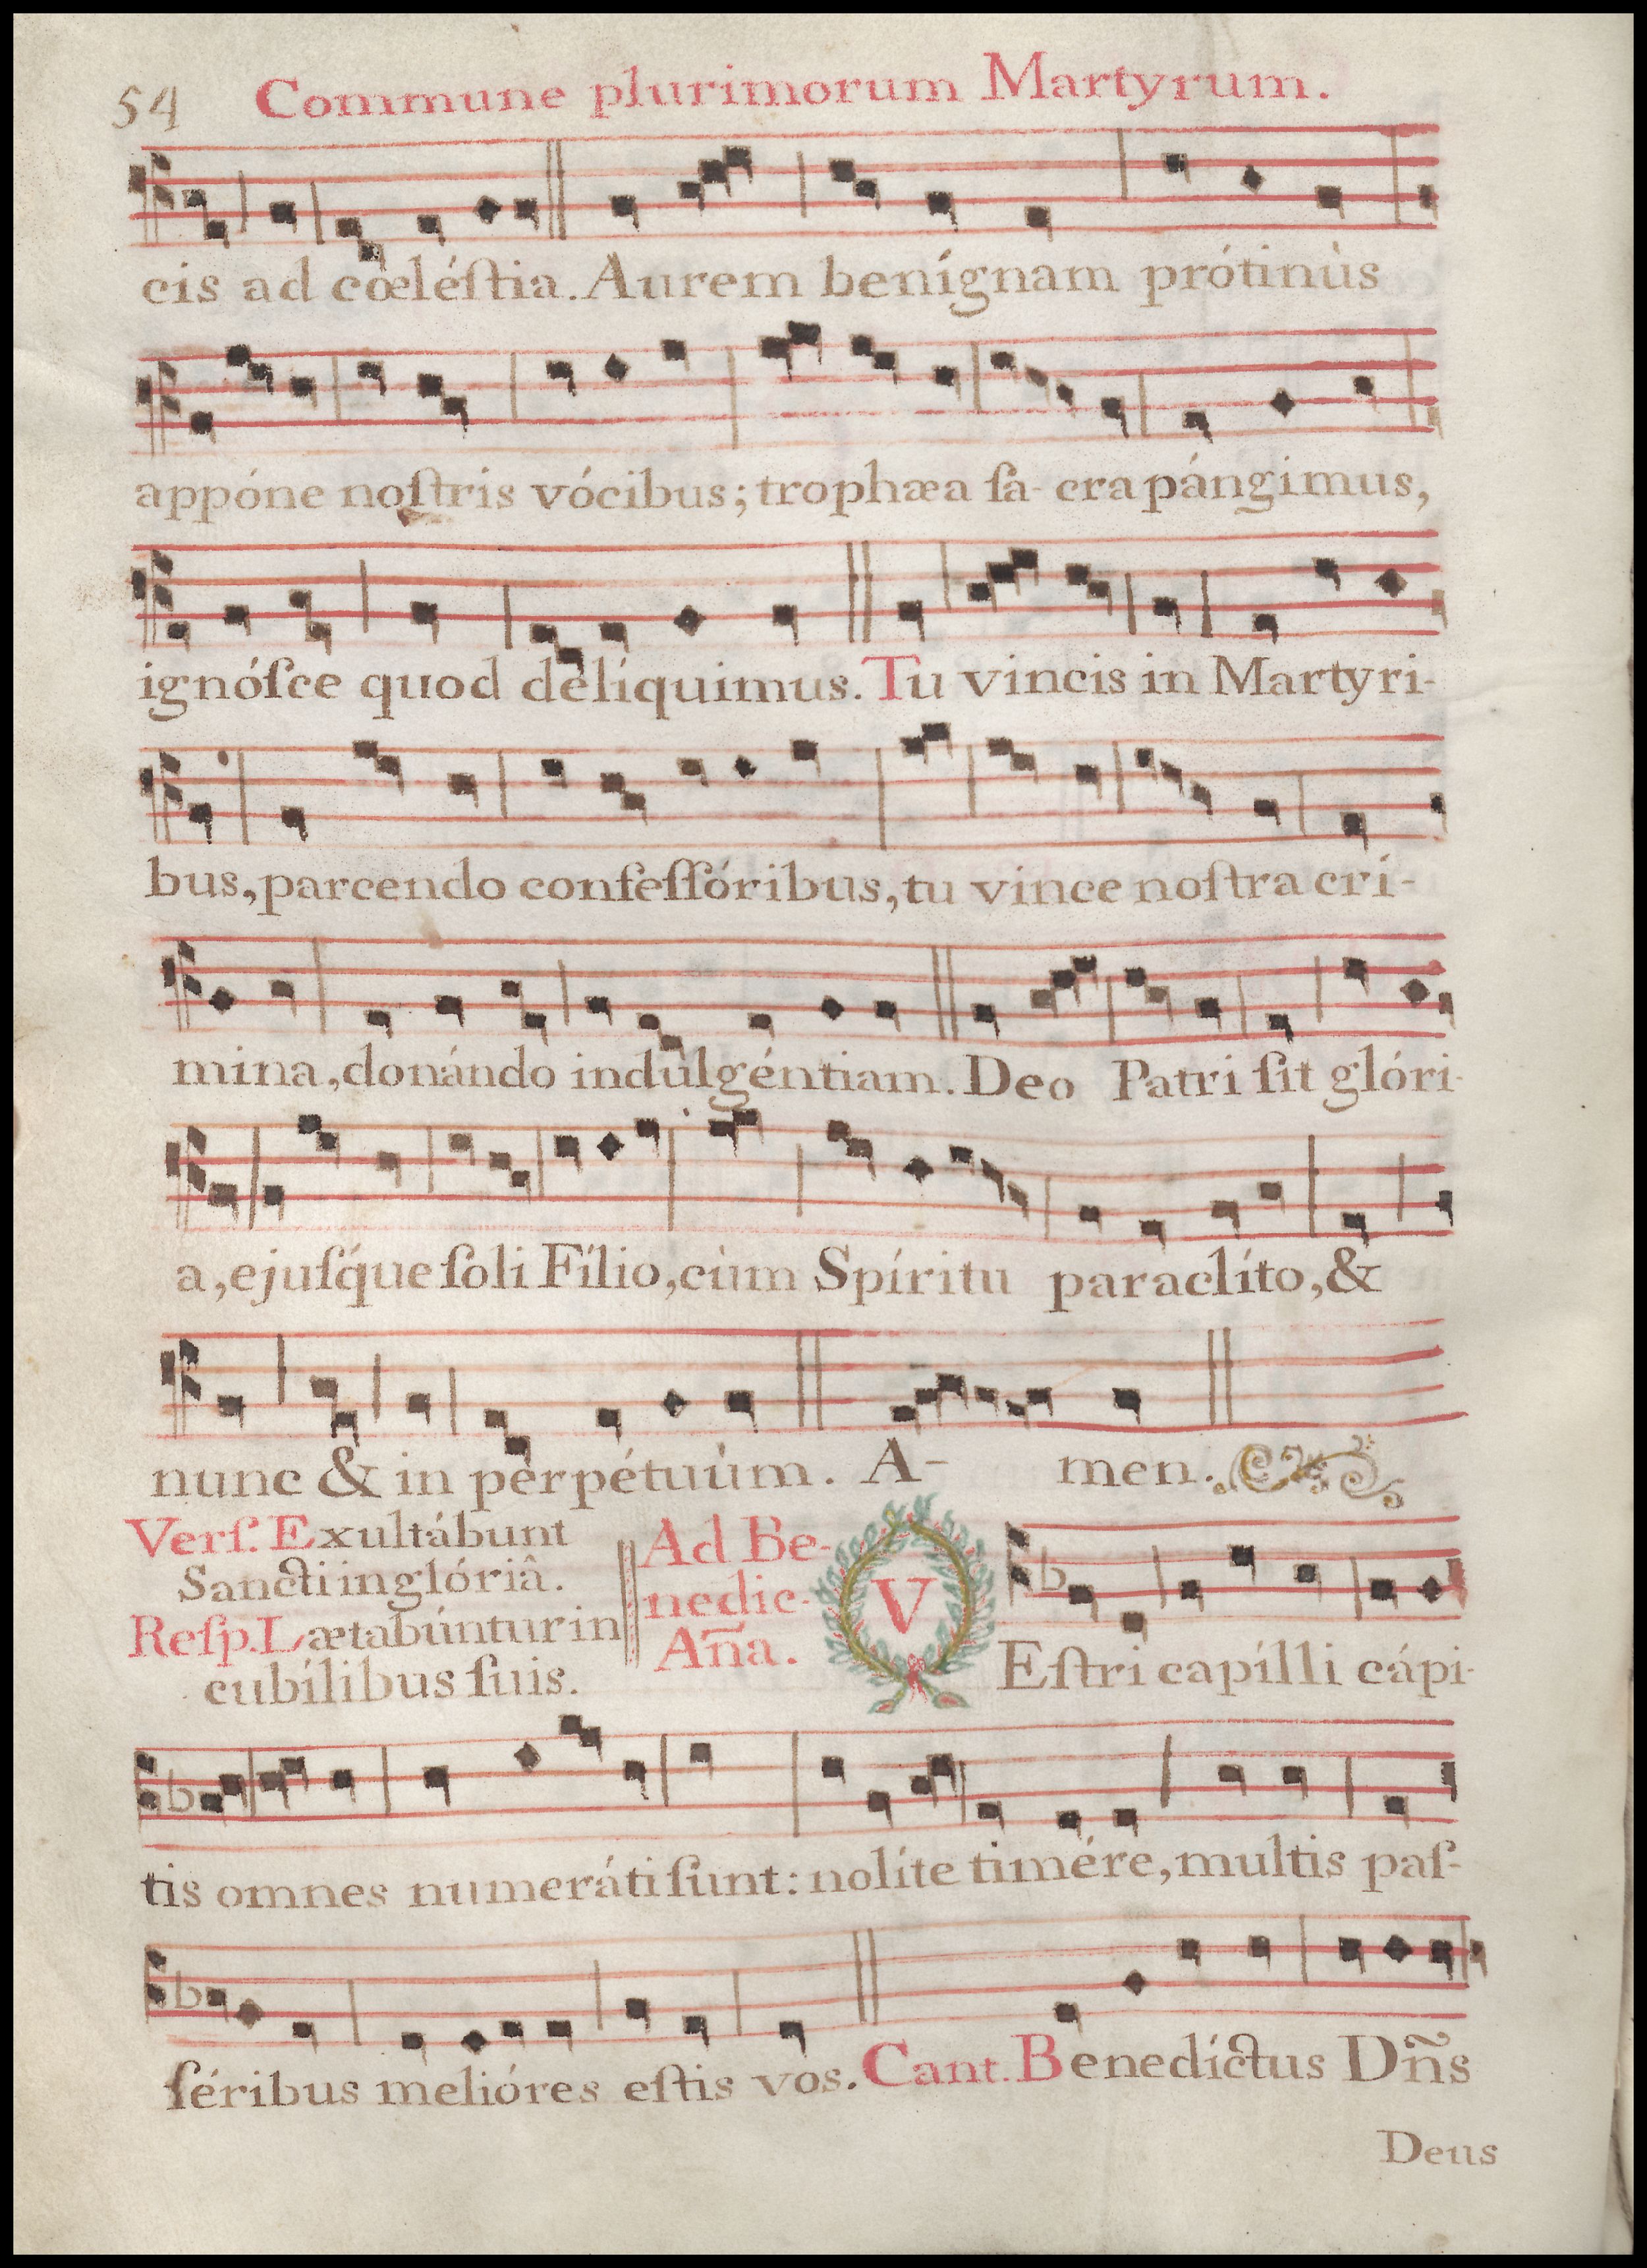 54 Commune plurimorum Martyrum.
cis ad cœléſtia. Aurem benígnam prótinùs
appóne noſtris vócibus; trophæa ſa- cra pángimus,
ignóſce quod delíquimus. Tu vincis in Martyri-
bus, parcendo confeſſóribus, tu vince noſtra crí-
mina, donándo indulgéntiam. Deo Patri ſit glóri-
a, ejuſq́ue ſoli Fílio, cùm Spíritu paraclíto, &
nunc & in perpétuùm. A- men.
Verſ. Exultábunt
Sancti in glóriâ.
Reſp. Lætabúntur in
cubílibus ſuis.
Ad Be-
nedic.
Aña.
VEſtri capílli cápi-
tis omnes numeráti ſunt: nolíte timére, multis paſ-
ſéribus melióres eſtis vos. Cant. Benedíctus Dñs
Deus